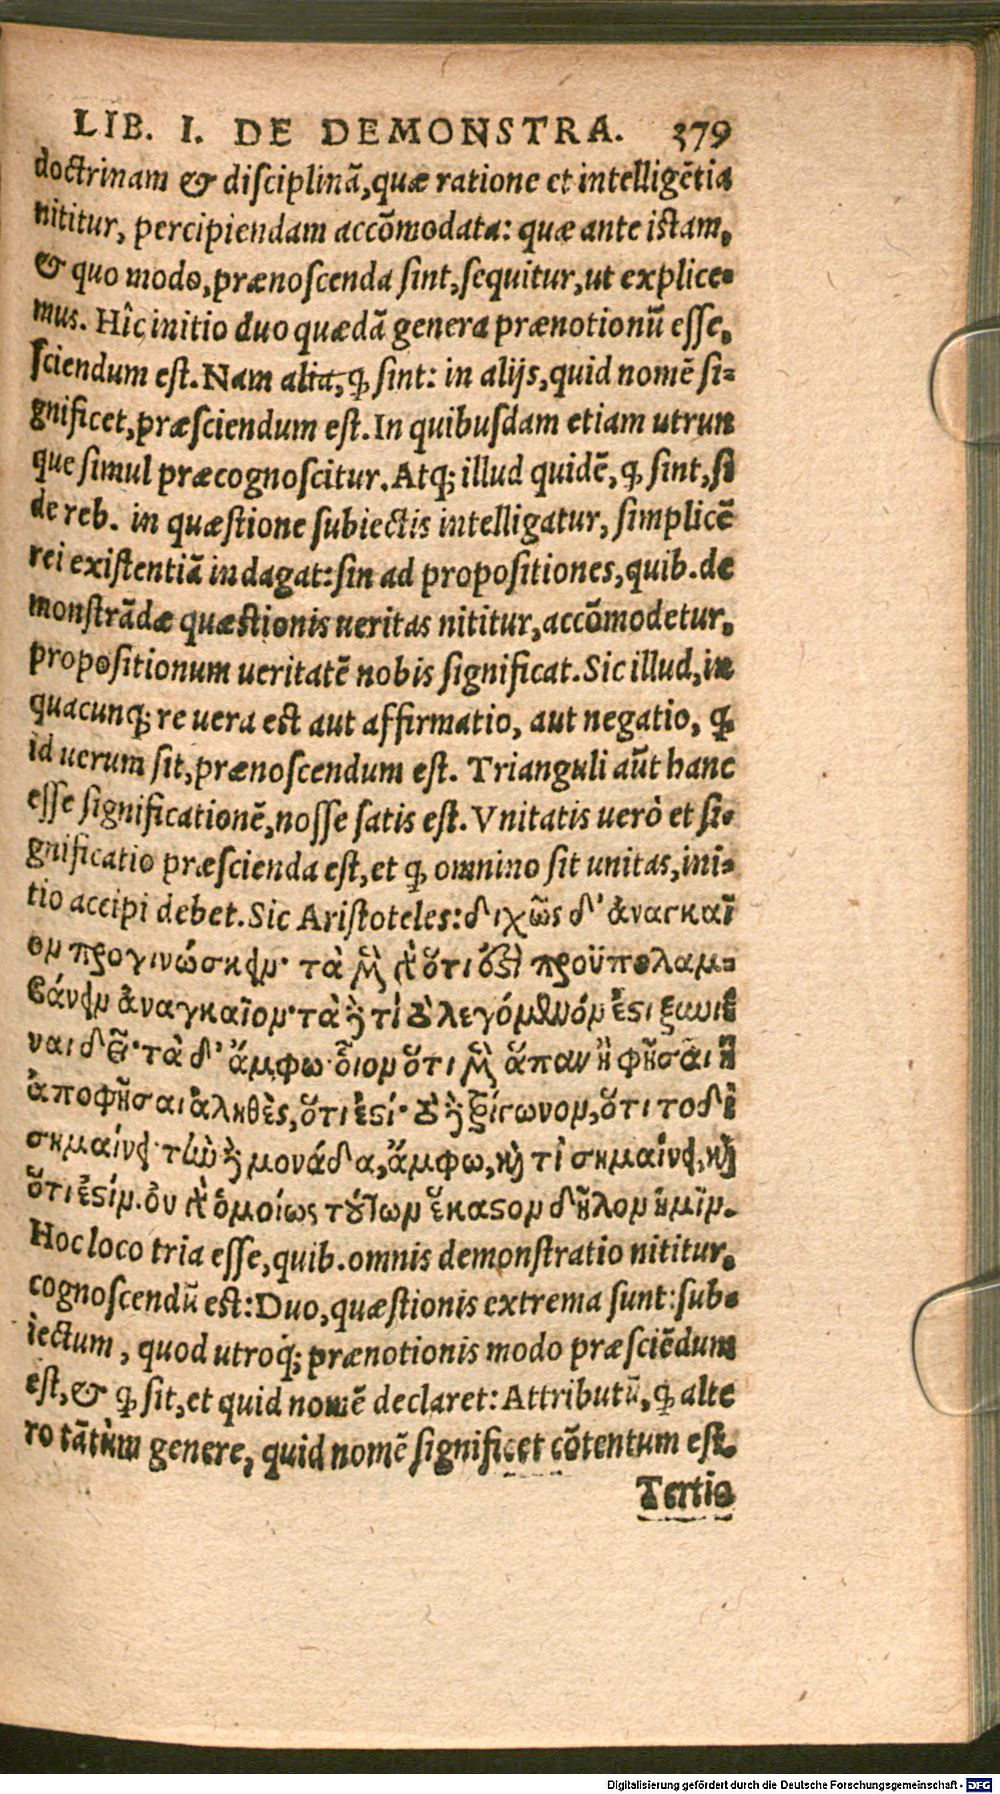 LIB. I. DE DEMONSTRA. 379
doctrinam & disciplinā, quæ ratione et intelligētia
nititur, percipiendam accōmodata: quæ ante istam,
& quo modo, prænoscenda sint, sequitur, ut explice-
mus. Hîc initio duo quædā genera prænotionū esse,
sciendum est. Nam alia, ꝙ sint: in alijs, quid nomē si-
gnificet, præsciendum est. In quibusdam etiam utrun
que simul præcognoscitur. Atq; illud quidē, ꝙ sint, si
de reb. in quæstione subiectis intelligatur, simplicē
rei existentiā indagat: sin ad propositiones, quib. de
monstrādæ quæstionis ueritas nititur, accōmodetur,
propositionum ueritatē nobis significat. Sic illud, in
quacunq; re uera est aut affirmatio, aut negatio, ꝙ
id uerum sit, prænoscendum est. Trianguli aūt hanc
esse significationē, nosse satis est. Vnitatis uerò et si-
gnificatio præscienda est, et ꝙ omnino sit unitas, ini-
tio accipi debet. Sic Aristoteles: διχῶς δ' ἀναγκαῖ
ον προγινώσκειν· τὰ μὲν γὰρ ὅτι ἐστὶ προϋπολαμ-
βάνειν ἀναγκαῖον· τὰ δὲ τί τὸ λεγόμενόν ἐστι ξυνιέ
ναι δεῖ· τὰ δ' ἄμφω· οἷον ὅτι μὲν ἅπαν ἢ φῆσαι ἢ
ἀποφῆσαι ἀληθὲς, ὅτι ἐστί· τὸ δὲ τρίγωνον, ὅτι τοδὶ
σημαίνει· τὴν δὲ μονάδα, ἄμφω, καὶ τί σημαίνει, καὶ
ὅτι ἐστίν. οὐ γὰρ ὁμοίως τούτων ἕκαστον δῆλον ἡμῖν.
Hoc loco tria esse, quib. omnis demonstratio nititur,
cognoscendū est: Duo, quæstionis extrema sunt: sub-
iectum, quod utroq; prænotionis modo præsciēdum
est, & ꝙ sit, et quid nomē declaret: Attributū, ꝙ alte
ro tātùm genere, quid nomē significet cōtentum est.
Tertio
Digitalisierung gefördert durch die Deutsche Forschungsgemeinschaft - DFG